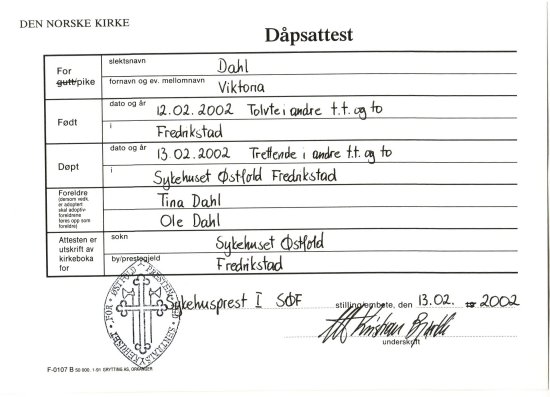 DEN NORSKE KIRKE
Dåpsattest
For gutt/pike
slektsnavn Dahl
fornavn og ev. mellomnavn Viktoria
Født
dato og år 12.02.2002 Tolvte i andre t.t. og to
i Fredrikstad
Døpt
dato og år 13.02.2002 Trettende i andre t.t. og to
i Sykehuset Østfold Fredrikstad
Foreldre
(dersom vedk.
er adoptert
skal adoptiv-
foreldrene
føres opp som
foreldre)
Tina Dahl
Ole Dahl
Attesten er
utskrift av
kirkeboka
for
sokn Sykehuset Østfold
by/prestegjeld Fredrikstad
FOR ØSTFOLD PRESTEKONTOR SENTRALSYKEHUSET
Sykehusprest I SØF stilling/embete, den 13.02. 2002
Kristian
underskrift
F-0107 B 50 000. 1-91 GRYTTING AS, ORKANGER